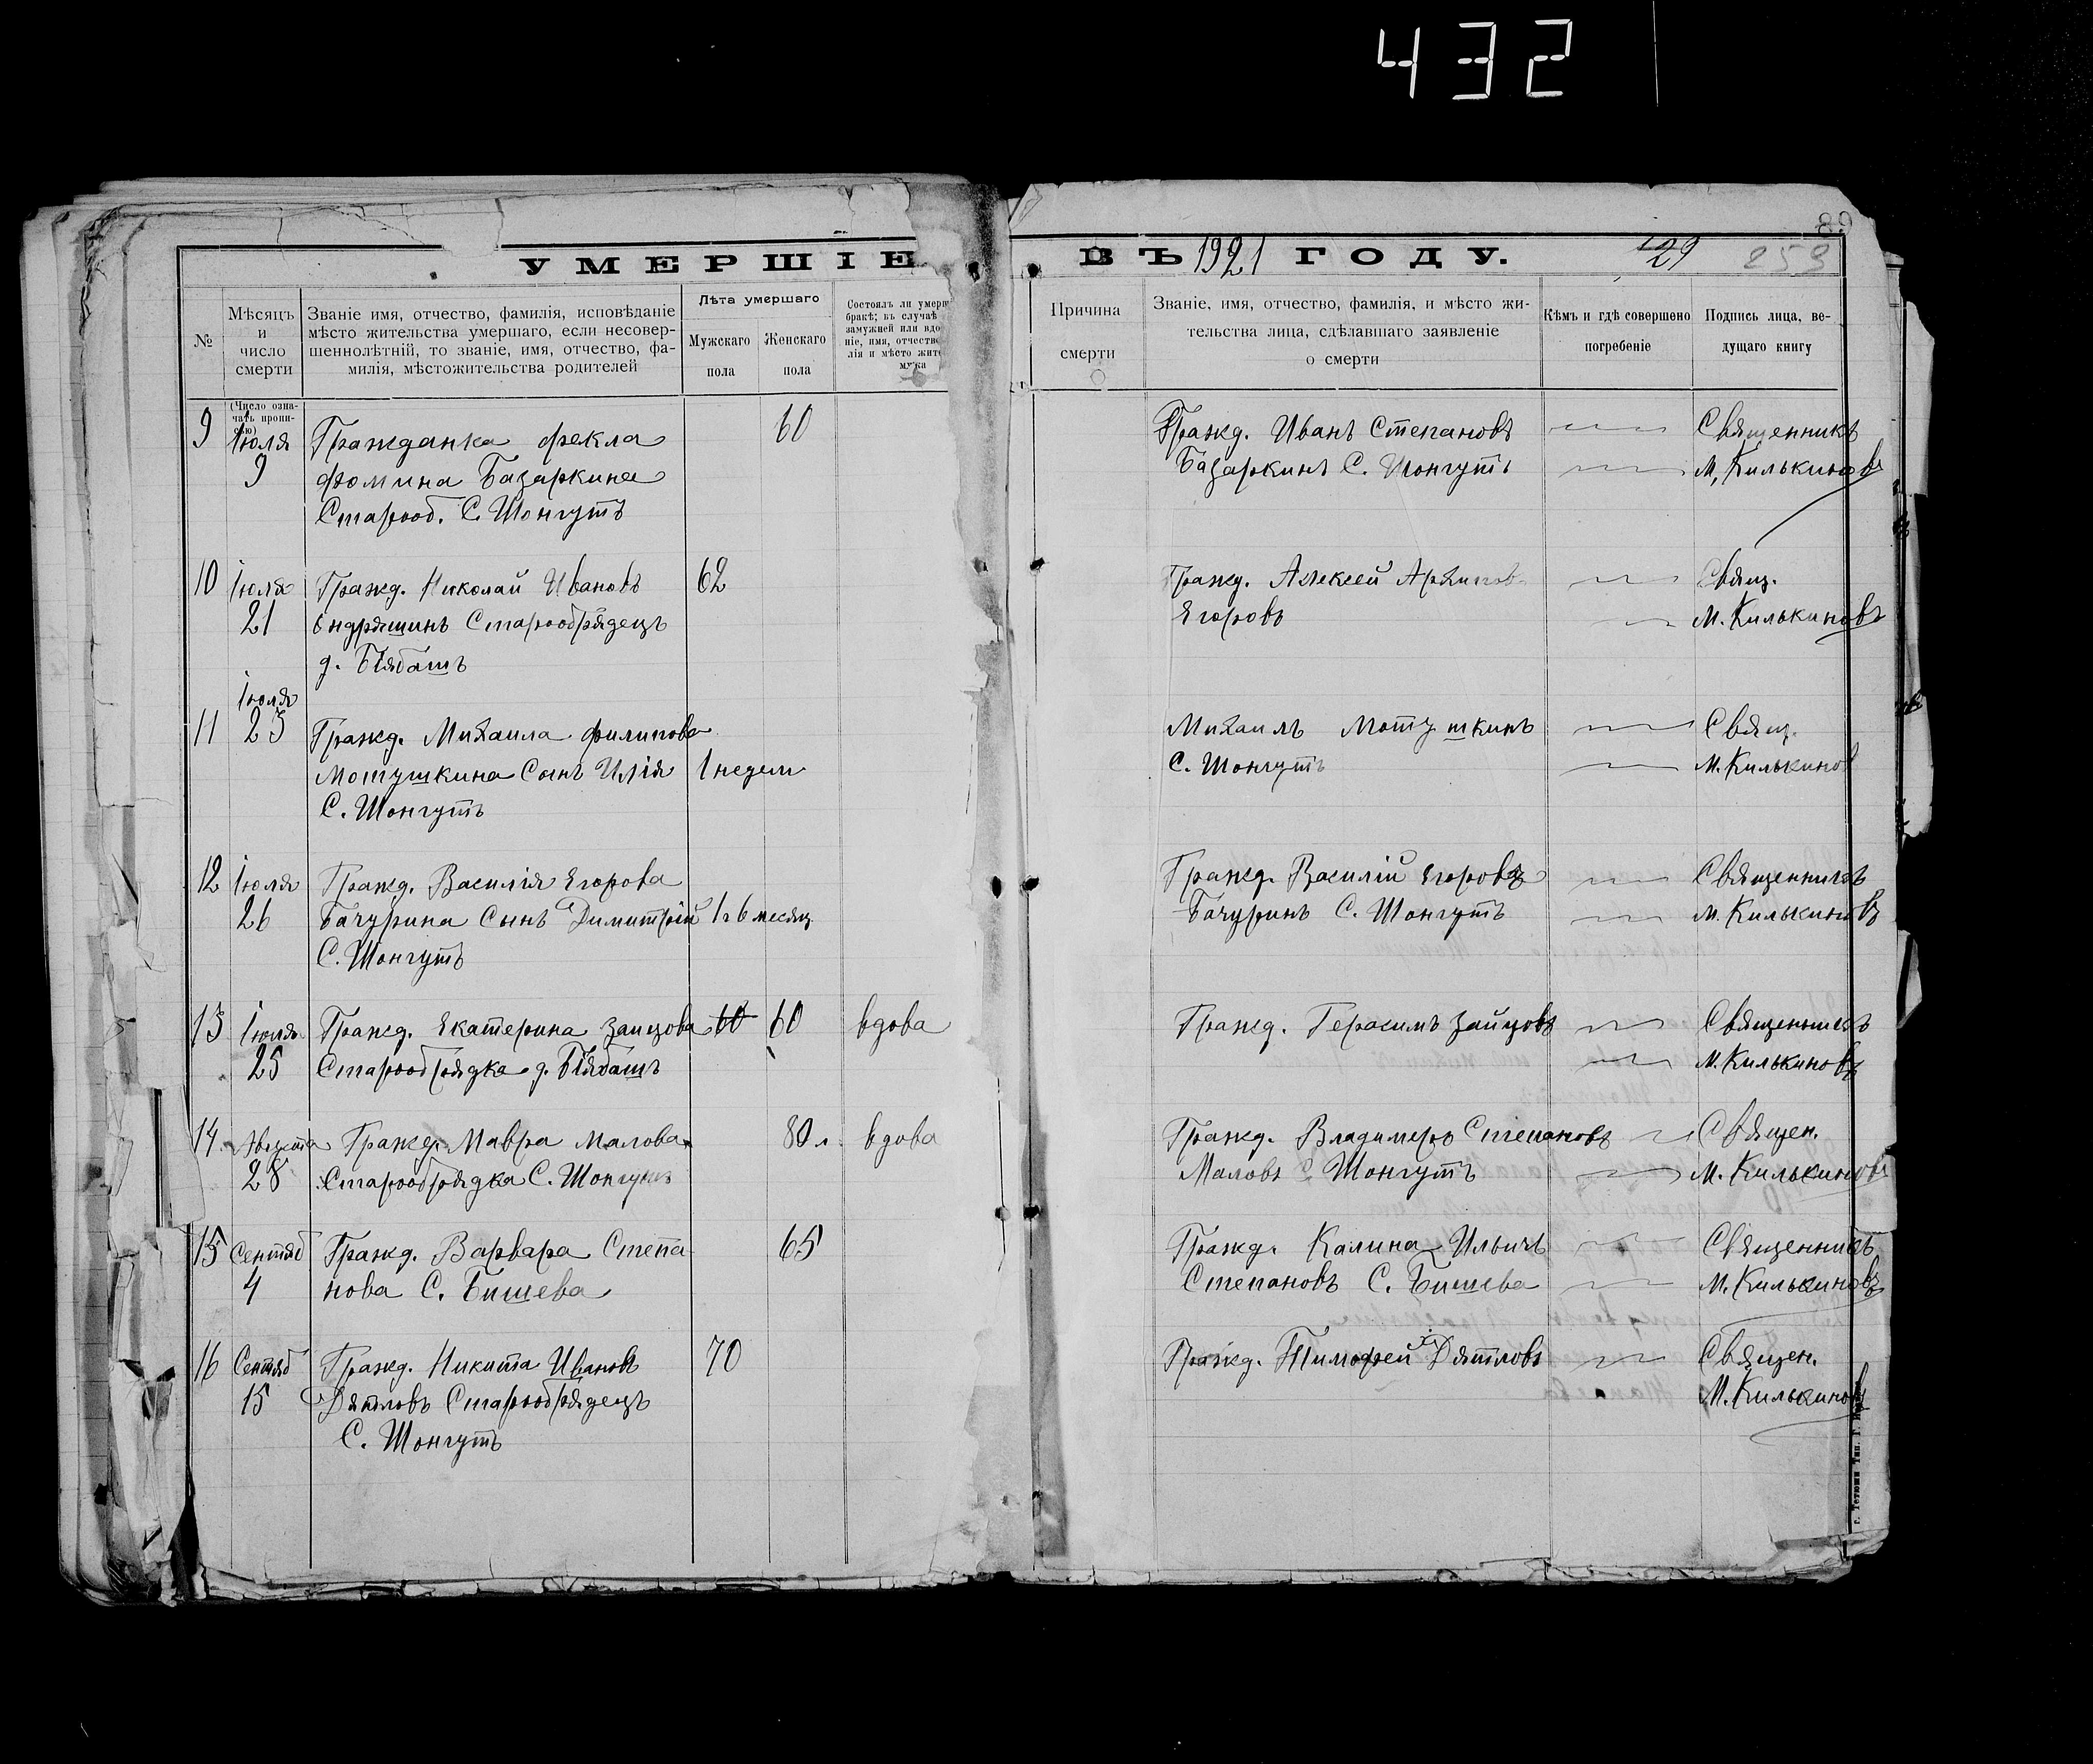 432
89
УМЕРШІЕ ВЪ 1921 ГОДУ.
129 253
№
Мѣсяцъ
и
число
смерти
(Число озна-
чать пропи-
сью)
Званіе имя, отчество, фамилія, исповѣданіе
мѣсто жительства умершаго, если несовер-
шеннолѣтній, то званіе, имя, отчество, фа-
милія, мѣстожительства родителей
Лѣта умершаго
Мужскаго
пола
Женскаго
пола
Состоялъ ли умерш
бракѣ; въ случаѣ
замужней или вдо
ніе, имя, отчество
лія и мѣсто жите
мужа
Причина
смерти
Званіе, имя, отчество, фамилія, и мѣсто жи-
тельства лица, сдѣлавшаго заявленіе
о смерти
Кѣмъ и гдѣ совершено
погребеніе
Подпись лица, ве-
дущаго книгу
9 Іюля Гражданка Фекла 60 Гражд. Иванъ Степановъ Священникъ
9 Фомина Базаркина Базаркинъ С. Шонгутъ М. Килькиновъ
Старооб. С. Шонгутъ
10 Іюля Гражд. Николай Ивановъ 62 Гражд. Алексей Архипов Свящ.
21 Ендряшинъ Старообрядецъ Егоровъ М. Килькиновъ
д. Бябашъ
Іюля
11 23 Гражд. Михаила Филипова Михаилъ Мотушкинъ Свящ.
Мотушкина Сынъ Илія 1 недели С. Шонгутъ М. Килькинов
С. Шонгутъ
12 Іюля Гражд. Василія Егорова Гражд. Василій Егоровъ Священникъ
26 Бачурина Сынъ Димитрій 1 г 6 месяц Бачуринъ С. Шонгутъ М. Килькиновъ
С. Шонгутъ
13 Іюля Гражд. Екатерина Заицова 60 60 вдова Гражд. Герасимъ Зайцовъ Священникъ
25 Старообрядка д. Бябашъ М. Килькиновъ
14 Августа Гражд. Мавра Малова 80 л. вдова Гражд. Владимеръ Степановъ Священ.
28 Старообрядка С. Шонгутъ Маловъ С. Шонгутъ М. Килькиновъ
15 Сентяб Гражд. Варвара Степа 65 Гражд. Калина Ильичъ Священникъ
4 нова С. Бишева Степановъ С. Бишева М. Килькиновъ
16 Сентяб Гражд. Никита Ивановъ 70 Гражд. Тимофей Дятловъ Священ.
15 Дятловъ Старообрядецъ М. Килькиновъ
С. Шонгутъ